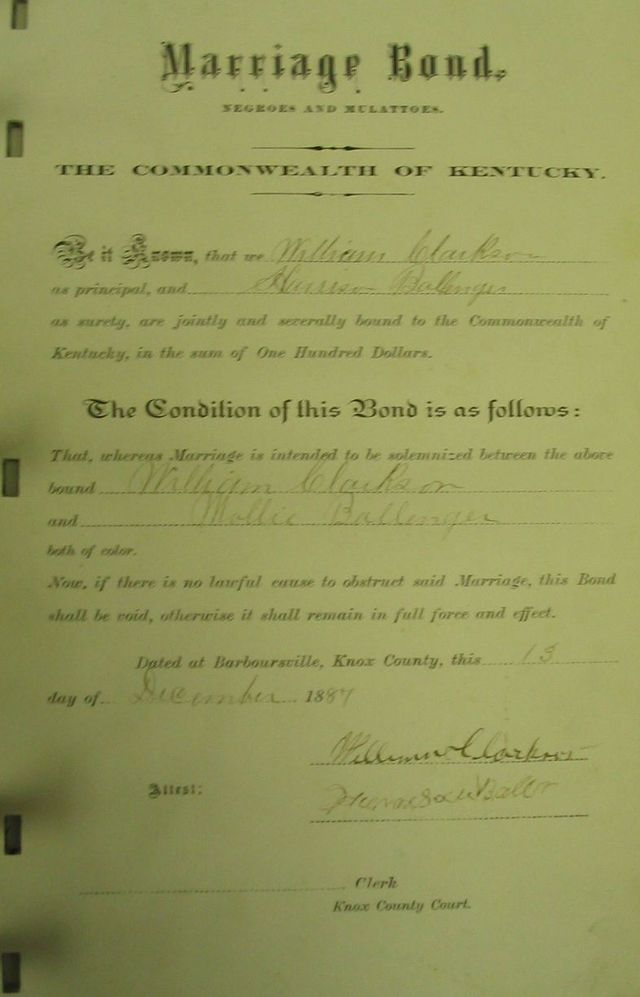 Marriage Bond.
NEGROES AND MULATTOES.
THE COMMONWEALTH OF KENTUCKY.
Be it Known, that we William Clarkson
as principal, and Harrison Ballinger
as surety, are jointly and severally bound to the Commonwealth of
Kentucky, in the sum of One Hundred Dollars.
The Condition of this Bond is as follows:
That, whereas Marriage is intended to be solemnized between the above
bound William Clarkson
and Mollie Ballinger
both of color.
Now, if there is no lawful cause to obstruct said Marriage, this Bond
shall be void, otherwise it shall remain in full force and effect.
Dated at Barboursville, Knox County, this 13
day of December 1887
William Clarkson
Attest:
Clerk
Knox County Court.